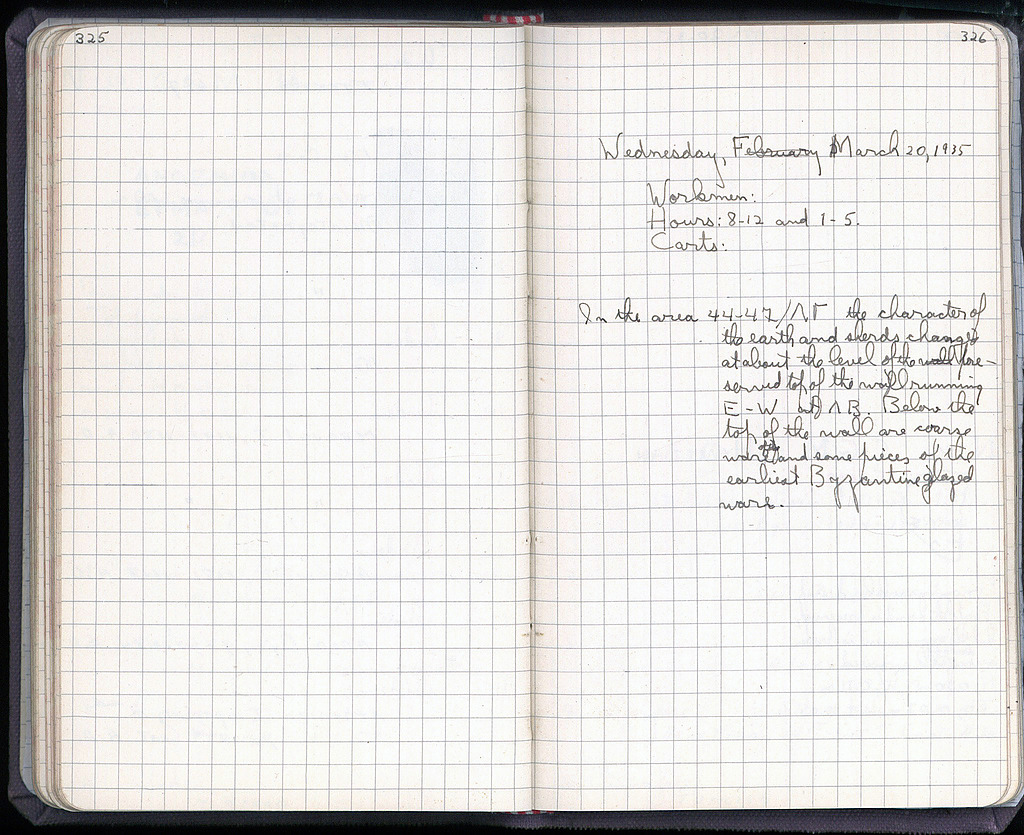 325
326
Wednesday, February March 20, 1935
Workmen:
Hours: 8-12 and 1-5.
Carts:
In the area 44-47/ΛΓ the character of
the earth and sherds changes
at about the level of the wall pre-
served top of the wall running
E-W at ΛB. Below the
top of the wall are coarse
ware and some pieces of the
earliest Byzantine glazed
ware.